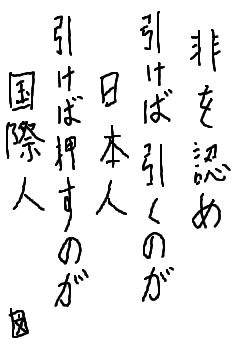 非を認め
引けば引くのが
日本人
引けば押すのが
国際人